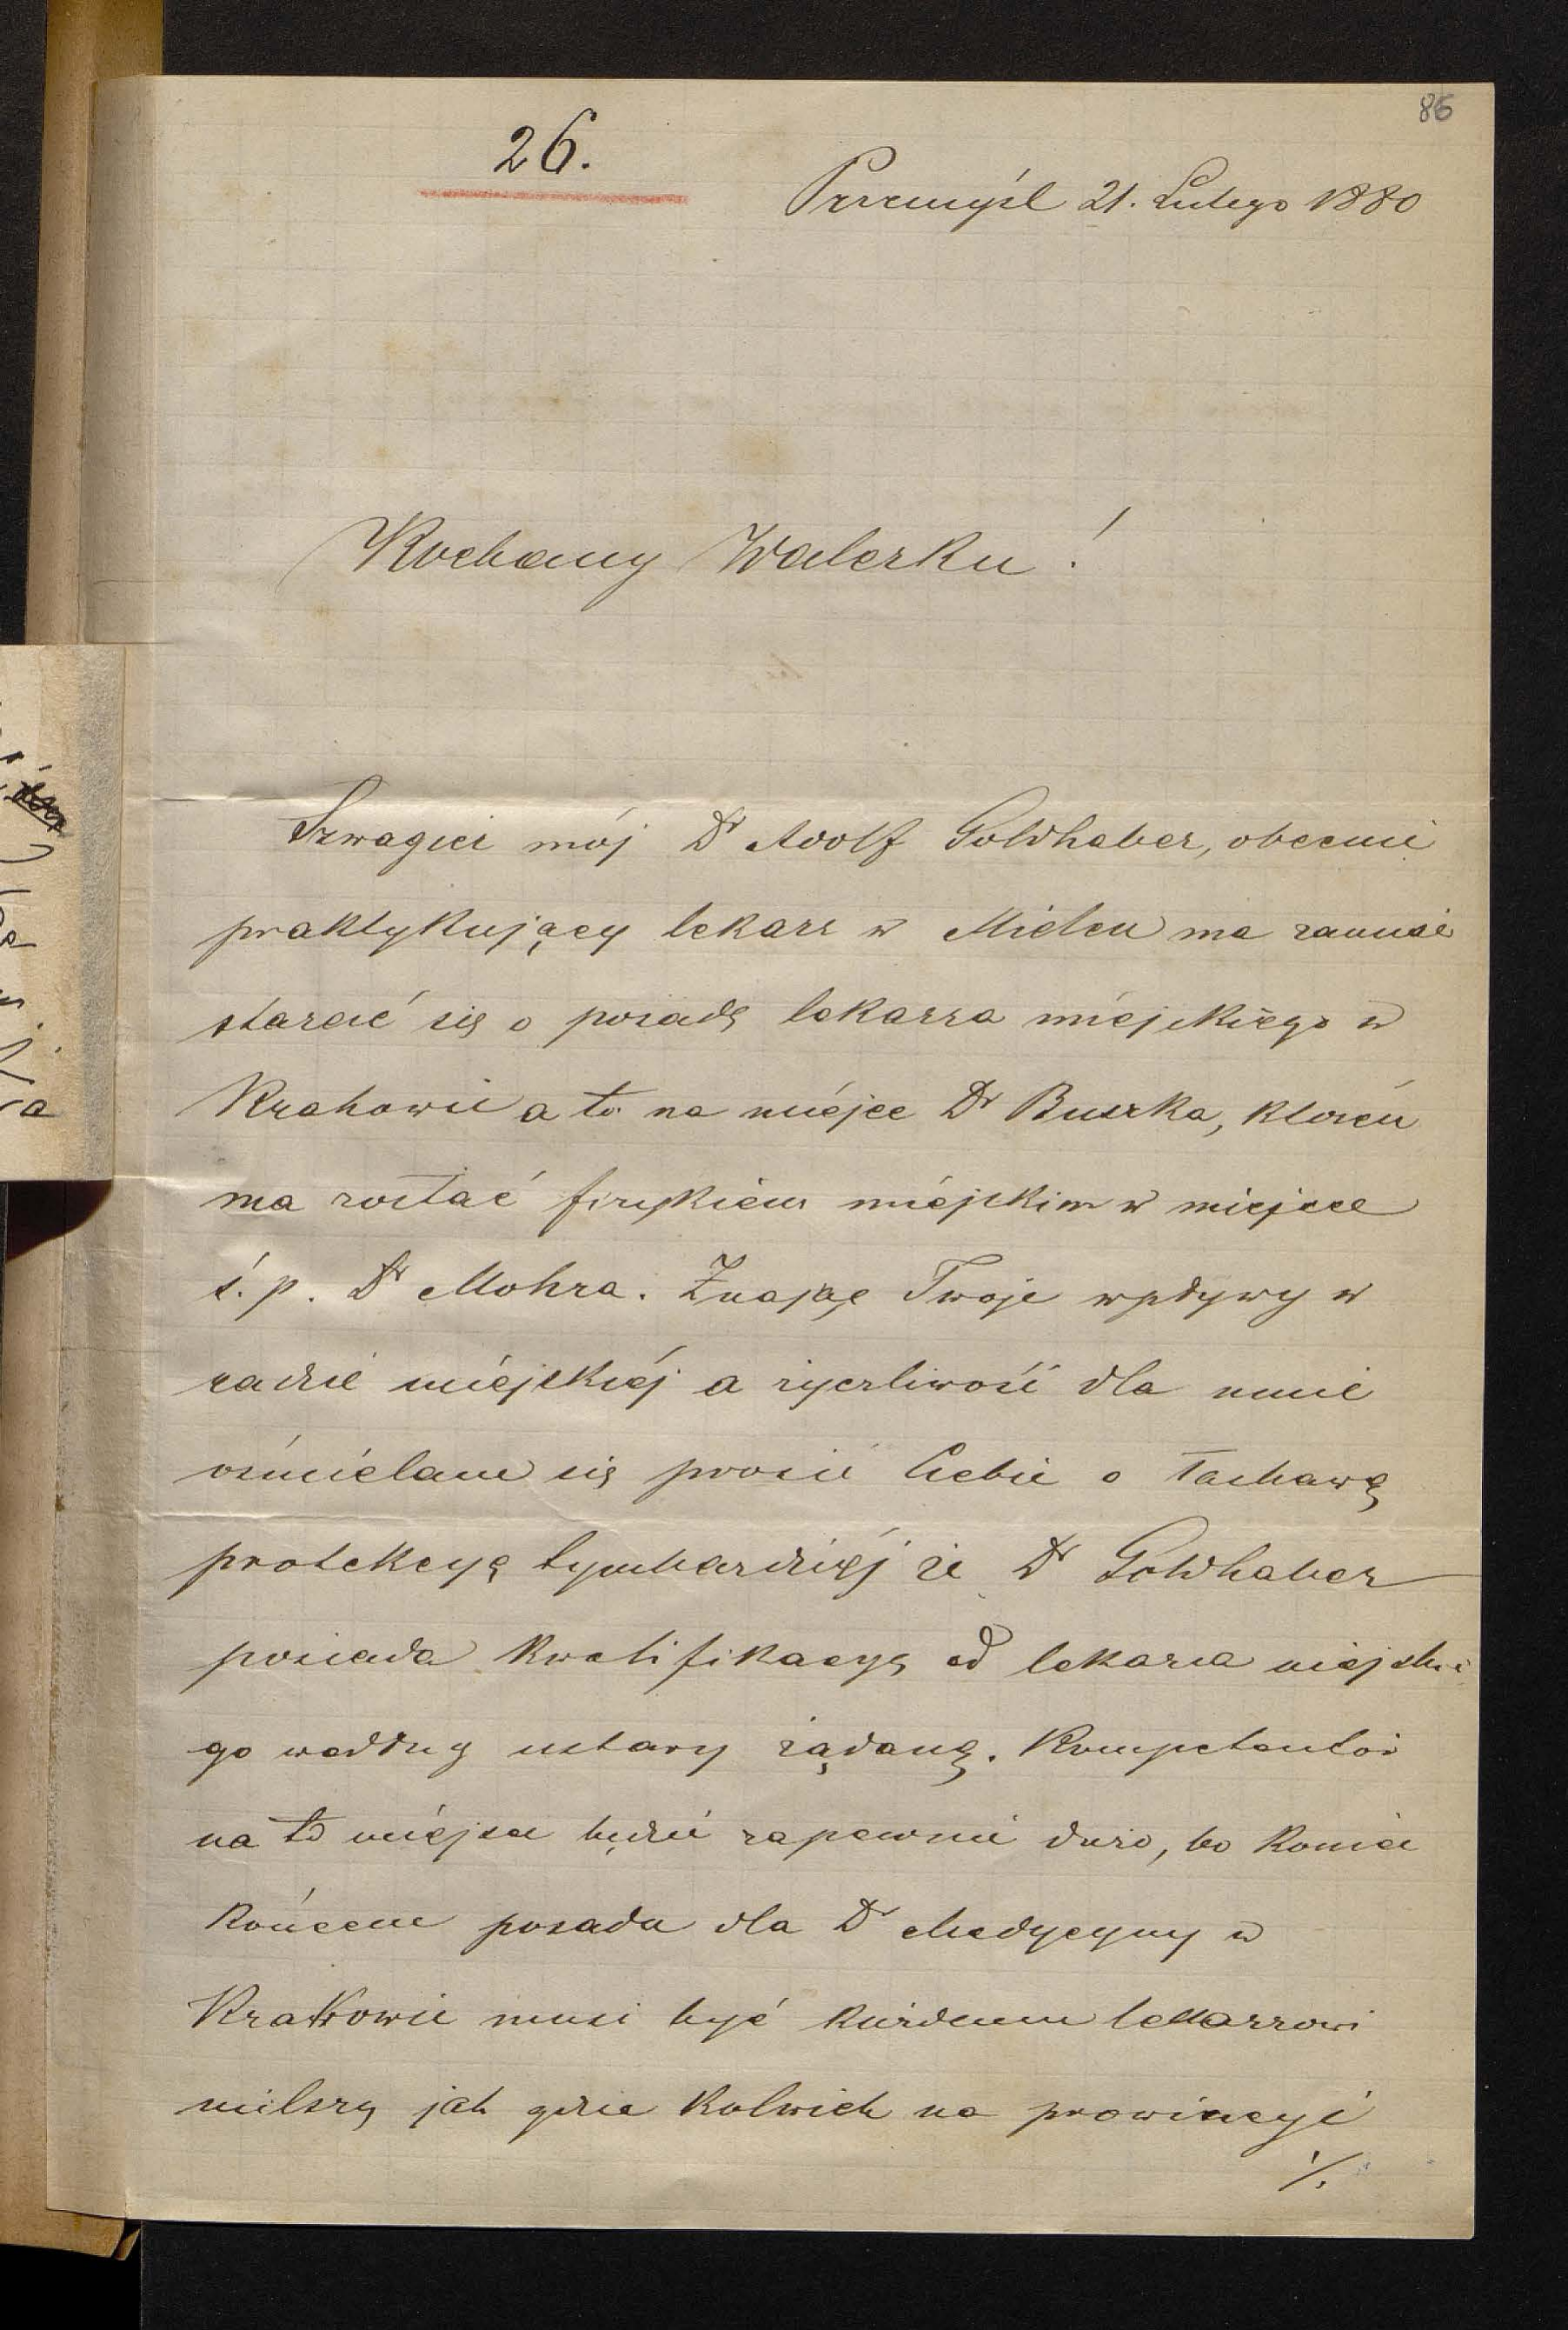 86
26.
Przemyśl 21. Lutego 1880
Kochany Walerku!
Szwagier mój Dr Adolf Goldhaber, obecnie
praktykujący lekarz w Mielcu ma zamiar
starać się o posadę lekarza miejskiego w
Krakowie a to na miejsce Dr Buszka, który
ma zostać fizykiem miejskim w miejsce
ś. p. Dr Mohra. Znając Twoje wpływy w
radzie miejskiéj a życzliwość dla mnie
ośmielam się prosić Ciebie o łaskawą
protekcyę tymbardziéj że Dr Goldhaber
posiada kwalifikacyę od lekarza miejskie
go według ustawy żądaną. Kompetentów
na to miejsce będzie zapewnie dużo, bo koniec
końcem posada dla Dr Medycyny w
Krakowie musi być każdemu lekarzowi
milszą jak gdzie kolwiek na prowincyi
./.